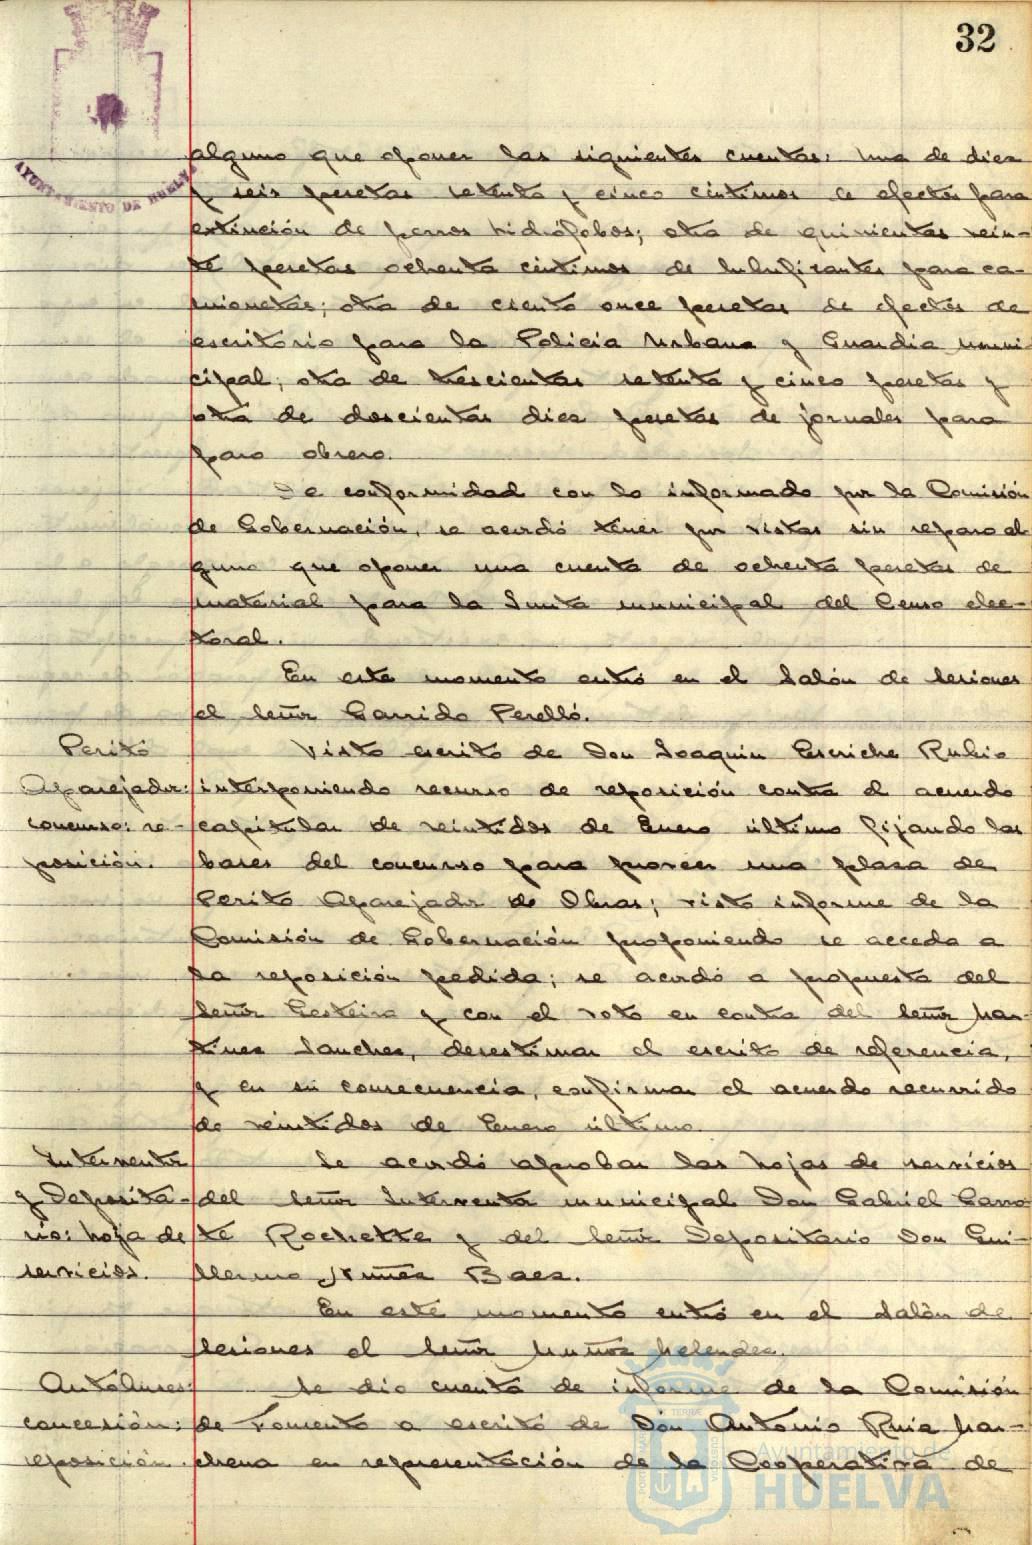 32
AYUNTAMIENTO DE HUELVA
alguno que oponer las siguientes cuentas: una de diez
y seis pesetas setenta y cinco céntimos de efectos para
extinción de perros hidrófobos; otra de quinientas vein-
te pesetas ochenta céntimos de lubrificantes para ca-
mionetas; otra de ciento once pesetas de efectos de
escritorio para la Policia Urbana y Guardia muni-
cipal; otra de trescientas setenta y cinco pesetas y
otra de doscientas diez pesetas de jornales para
paro obrero.
De conformidad con lo informado por la Comisión
de Gobernación, se acordó tener por vistas sin reparo al
guno que oponer una cuenta de ochenta pesetas de
material para la Junta municipal del Censo elec-
toral.
En este momento entró en el Salón de Sesiones
el Señor Garrido Perelló.
Perito
Aparejador:
concurso: re-
posición.
Visto escrito de Don Joaquin Escriche Rubio
interponiendo recurso de reposición contra el acuerdo
capitular de veintidos de Enero último fijando las
bases del concurso para proveer una plaza de
Perito Aparejador de Obras; visto informe de la
Comisión de Gobernación proponiendo se acceda a
la reposición pedida; se acordó a propuesta del
Señor Gesteira y con el voto en contra del Señor Mar-
tinez Sanchez, desestimar el escrito de referencia,
y en su consecuencia, confirmar el acuerdo recurrido
de veintidos de Enero último.
Interventor
y Deposita-
rio: hoja de
servicios.
Se acordó aprobar las hojas de servicios
del Señor Interventor municipal Don Gabriel Garro
te Rochette y del Señor Depositario Don Gui-
llermo Nuñez Baez.
En este momento entró en el Salón de
Sesiones el Señor Muñoz Melendez.
Autobuses:
concesión:
reposición.
Se dio cuenta de informe de la Comisión
de Fomento a escrito de Don Antonio Ruiz Mar-
chena en representación de la Cooperativa de
Ayuntamiento de
HUELVA